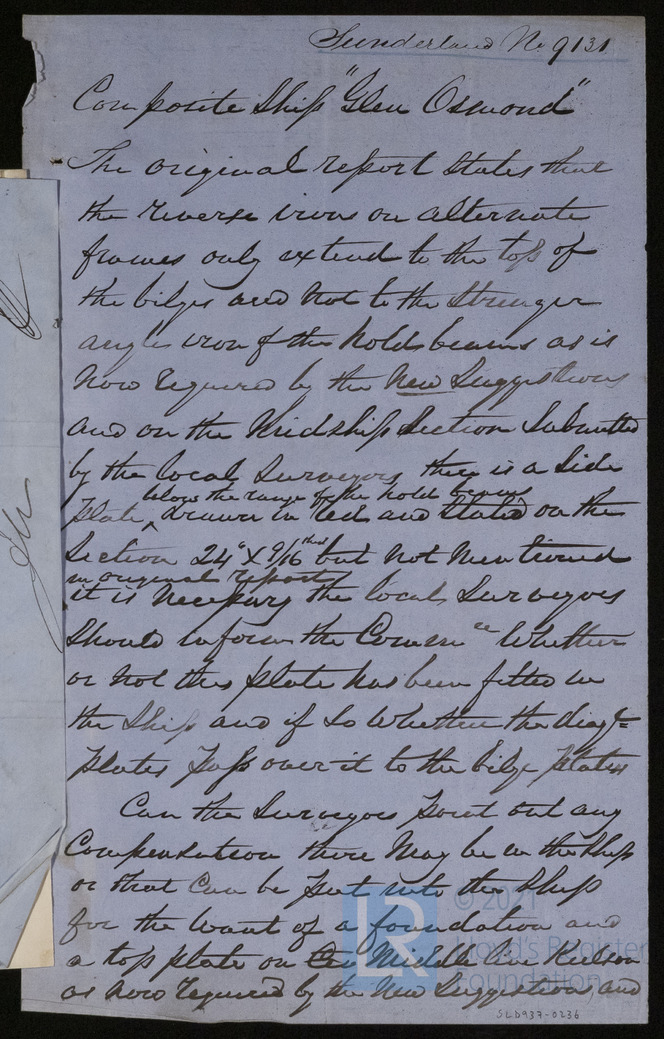 Sunderland No 9131
Composite Ship "Glen Osmond"
The original report states that
the reverse irons on alternate
frames only extend to the top of
the bilges and not to the Stringer
angle iron of the hold beams as is
now required by the New Suggestions
and on the Midship Section Submitted
by the local Surveyors there is a Side
below the range of the hold beams
plate ‸ drawn in red and stated on the
Section 24" X 9/16ths but not mentioned
in original report
it is necessary the local Surveyors
should inform the Commee whether
or not this plate has been fitted in
the Ship and if so whether the diagl
plates pass over it to the bilge plates
Can the Surveyors point out any
Compensation there may be in the Ship
or that can be put into the Ship
for the want of a foundation and
a top plate on Middle line Keelson
as now required by the New Suggestions, and
SLD937-0236
LR © 2021
Lloyd's Register
Foundation